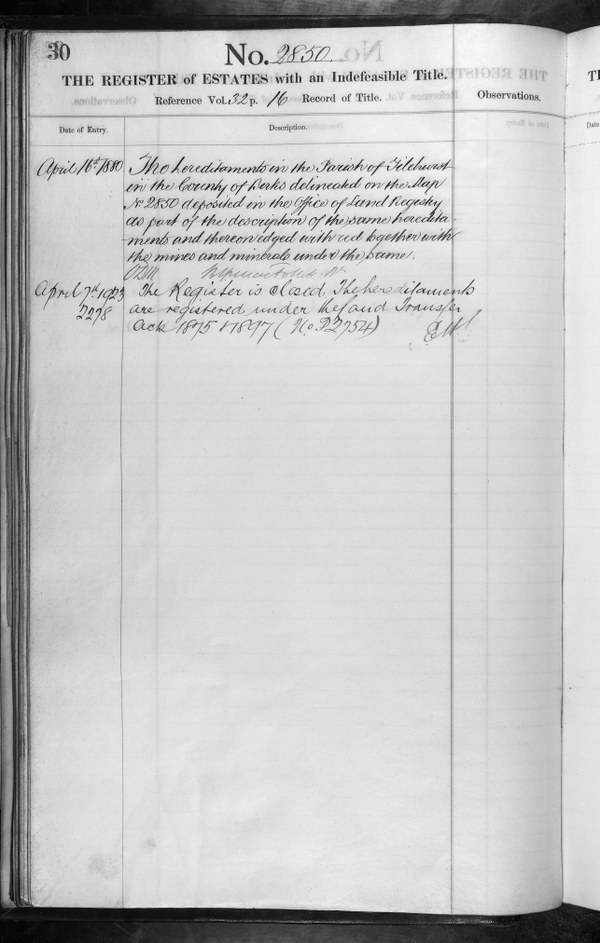 30
No. 2850.
THE REGISTER of ESTATES with an Indefeasible Title.
Reference Vol. 32 p. 16 Record of Title.
Observations.
Date of Entry.
Description.
April 16th 1880
The hereditaments in the Parish of Tilehurst
in the County of Berks delineated on the Map
No 2850 deposited in the Office of Land Registry
as part of the description of the same heredita-
ments and thereon edged with red together with
the mines and minerals under the same.
April 7th 1923
2278
The Register is closed. The hereditaments
are registered under the Land Transfer
Acts 1875 & 1897 (No. P2754)